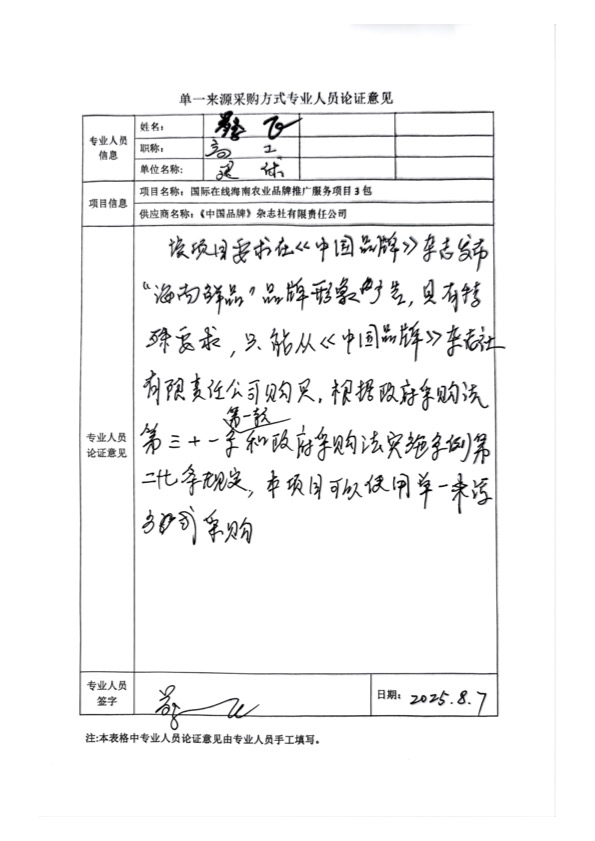 单一来源采购方式专业人员论证意见
专业人员
信息
姓名：
职称： 高工
单位名称： 退休
项目信息
项目名称：国际在线海南农业品牌推广服务项目3包
供应商名称：《中国品牌》杂志社有限责任公司
专业人员
论证意见
该项目要求在《中国品牌》杂志发布
“海南鲜品”品牌形象广告，具有特
殊要求，只能从《中国品牌》杂志社
有限责任公司购买，根据政府采购法
第三十一条第一款和政府采购法实施条例第
二十七条规定，本项目可以使用单一来源
方式采购
专业人员
签字
日期： 2025.8.7
注:本表格中专业人员论证意见由专业人员手工填写。